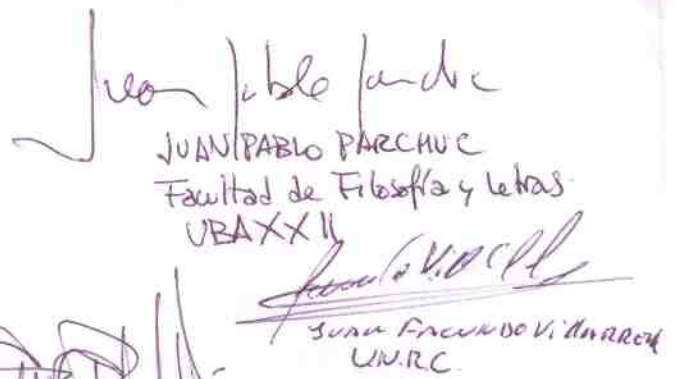 Juan Pablo Parchuc
JUAN PABLO PARCHUC
Facultad de Filosofía y Letras
UBA XXII
JUAN FACUNDO VillARREAL
UN.R.C.